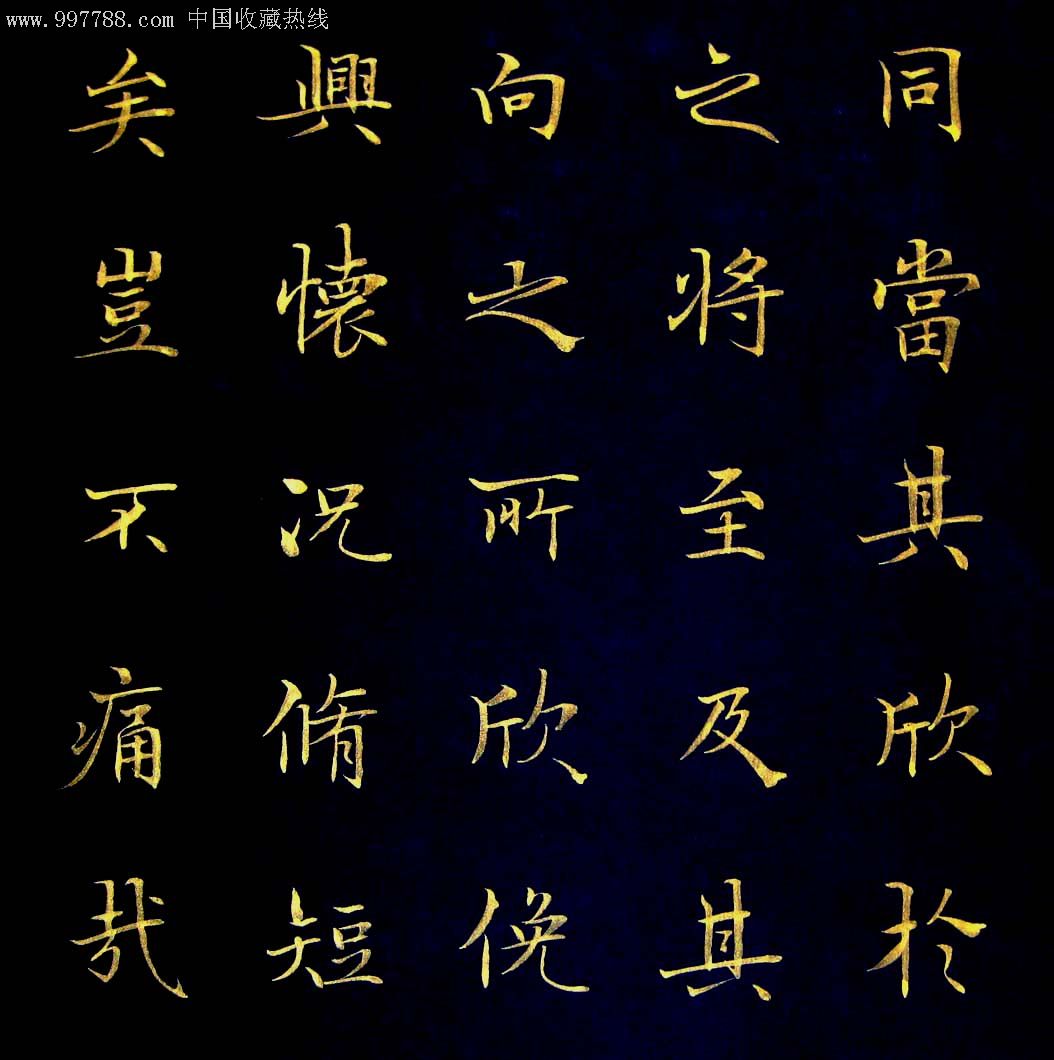 www.997788.com 中国收藏热线
同當其欣於
之將至及其
向之所欣俛
興懷況脩短
矣豈不痛哉